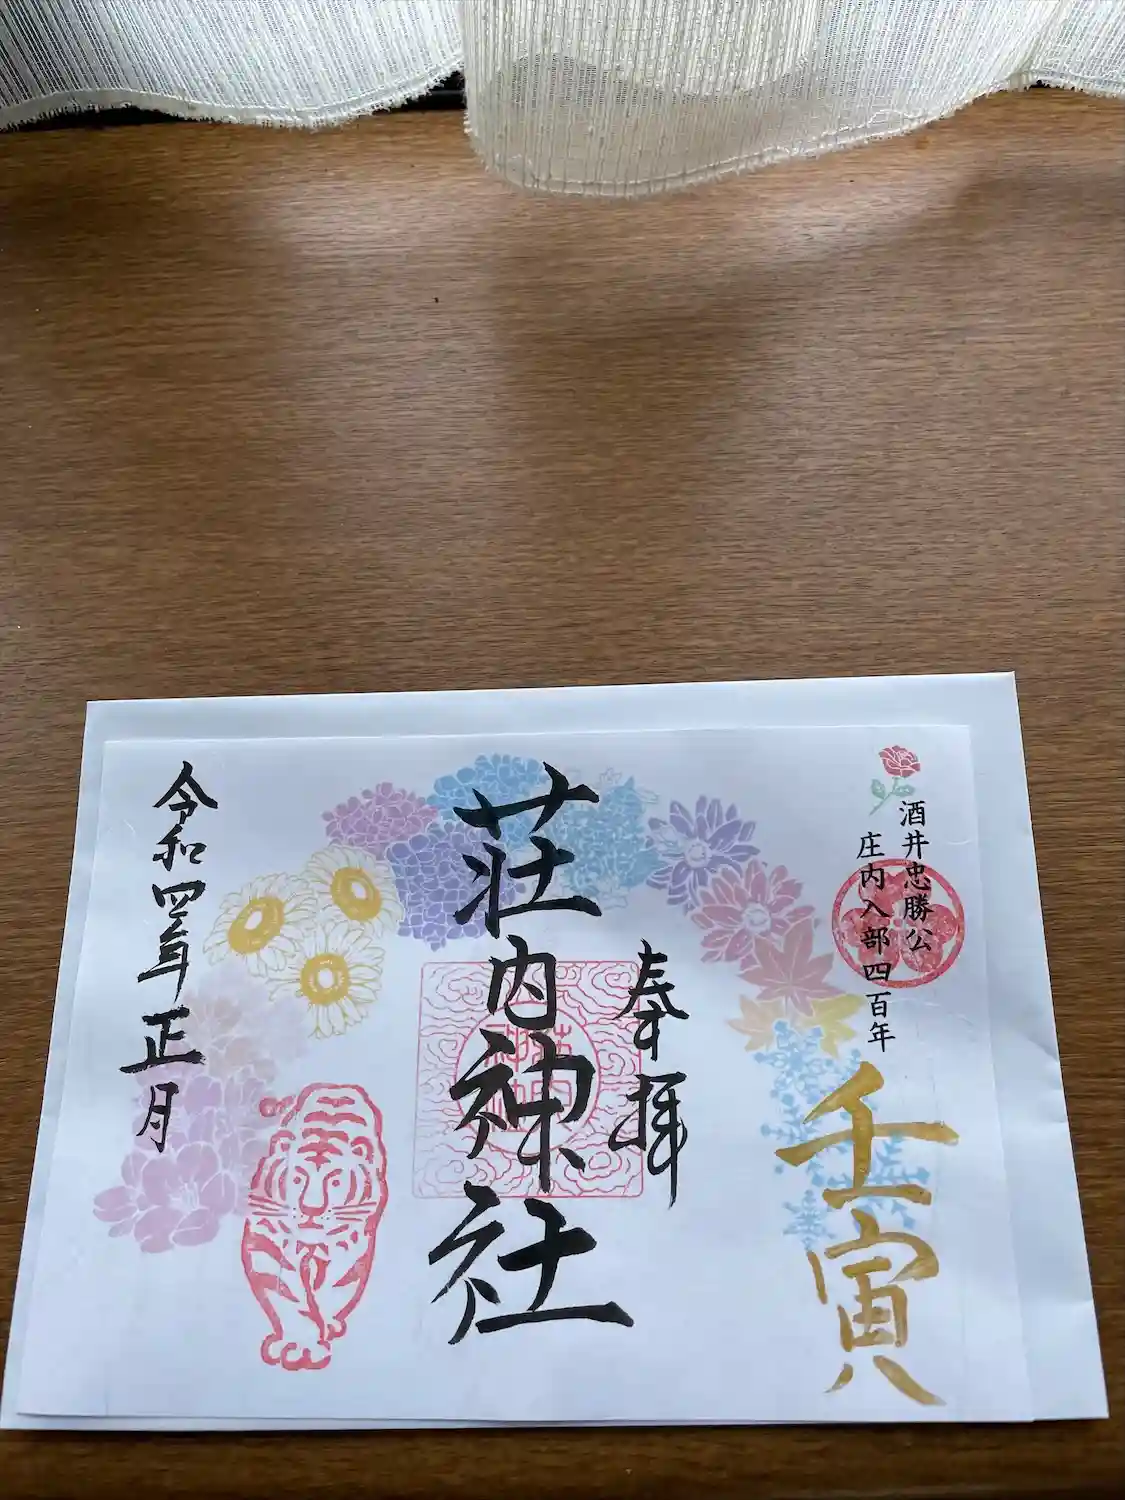 酒井忠勝公
庄内入部四百年
壬寅
奉拝
荘内神社
荘内
神社
令和四年正月